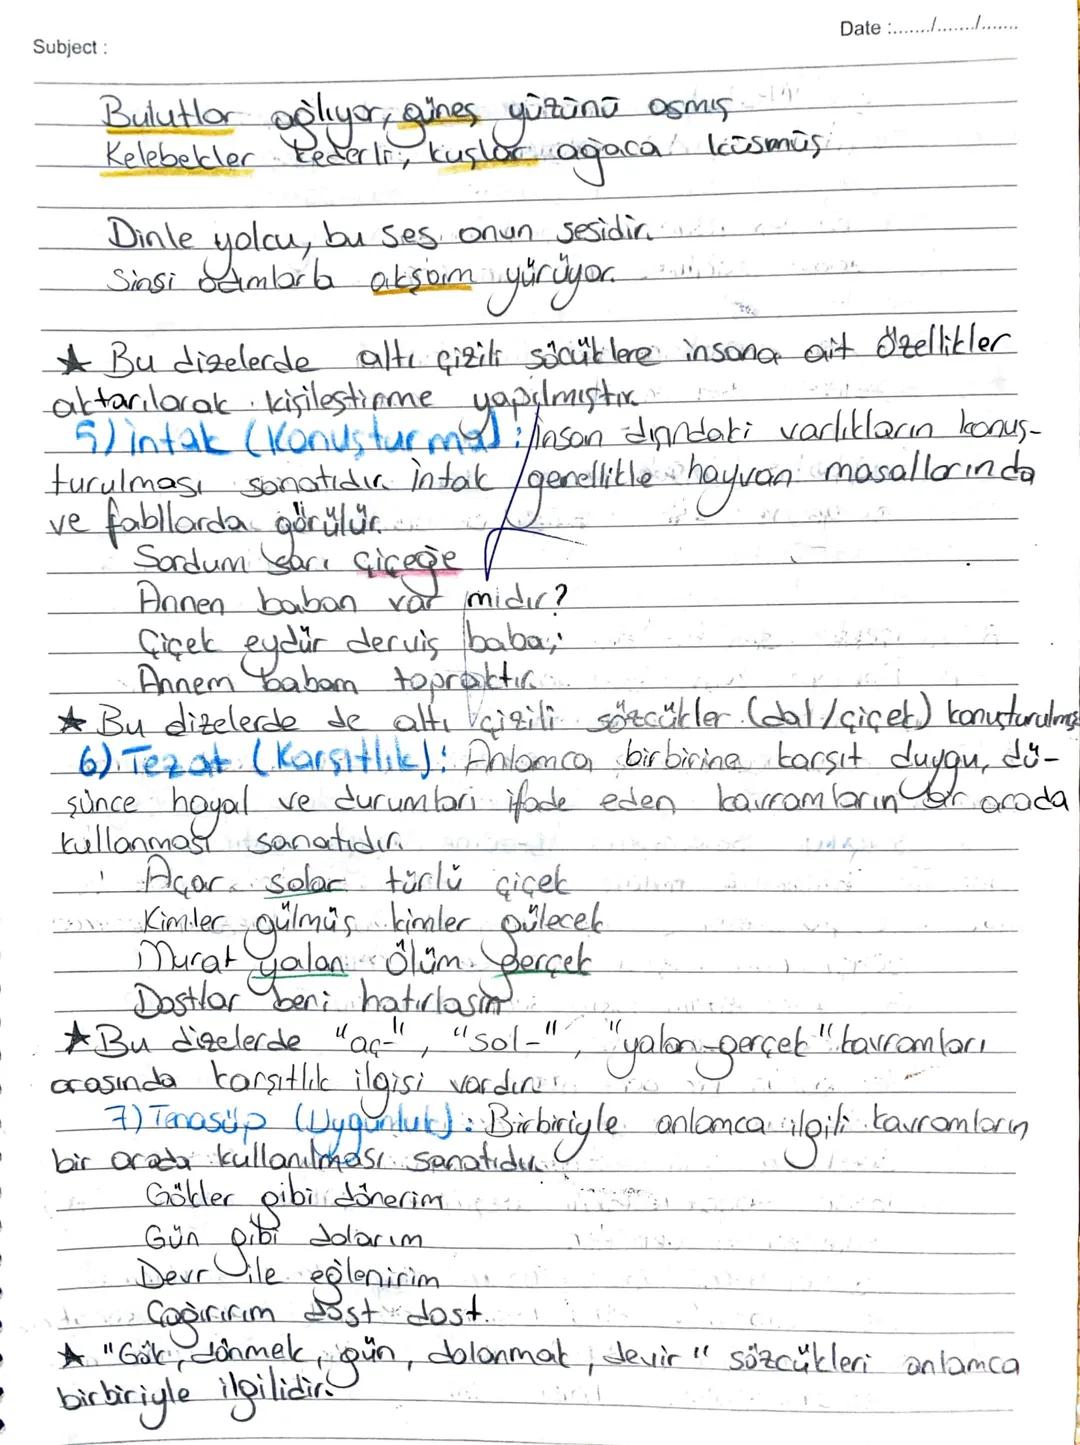 Date :......./......./.......
Subject :
Bulutlar ağlıyor, güneş yüzünü asmış
Kelebekler kederli, kuşlar ağaca küsmüş
Dinle yolcu, bu ses onun sesidir.
Sinsi adımlarla akşam yürüyor.
★ Bu dizelerde altı çizili söcüklere insana ait özellikler
aktarılarak kişileştirme yapılmıştır.
5) İntak (Konuşturma): İnsan dışındaki varlıkların konuş-
turulması sanatıdır. İntak genellikle hayvan masallarında
ve fabllarda görülür.
Sordum sarı çiçeğe
Annen baban var mıdır?
Çiçek eydür derviş baba;
Annem babam topraktır.
★ Bu dizelerde de altı çizili sözcükler (dal/çiçek) konuşturulmş
6) Tezat (Karşıtlık): Anlamca birbirine karşıt duygu, dü-
şünce hayal ve durumları ifade eden kavramların bir arada
kullanması sanatıdır.
Açar solar türlü çiçek
Kimler gülmüş kimler gülecek
Murat yalan ölüm gerçek
Dostlar beni hatırlasın
★ Bu dizelerde "aç-", "sol-", "yalan-gerçek" kavramları
arasında karşıtlık ilgisi vardır.
7) Tenasüp (Uygunluk): Birbiriyle anlamca ilgili kavramların
bir arada kullanılması sanatıdır.
Gökler gibi dönerim
Gün gibi dolarım
Devr ile eğlenirim
Çağırırım dost dost.
★ "Gök, dönmek, gün, dolanmak, devir" sözcükleri anlamca
birbiriyle ilgilidir.